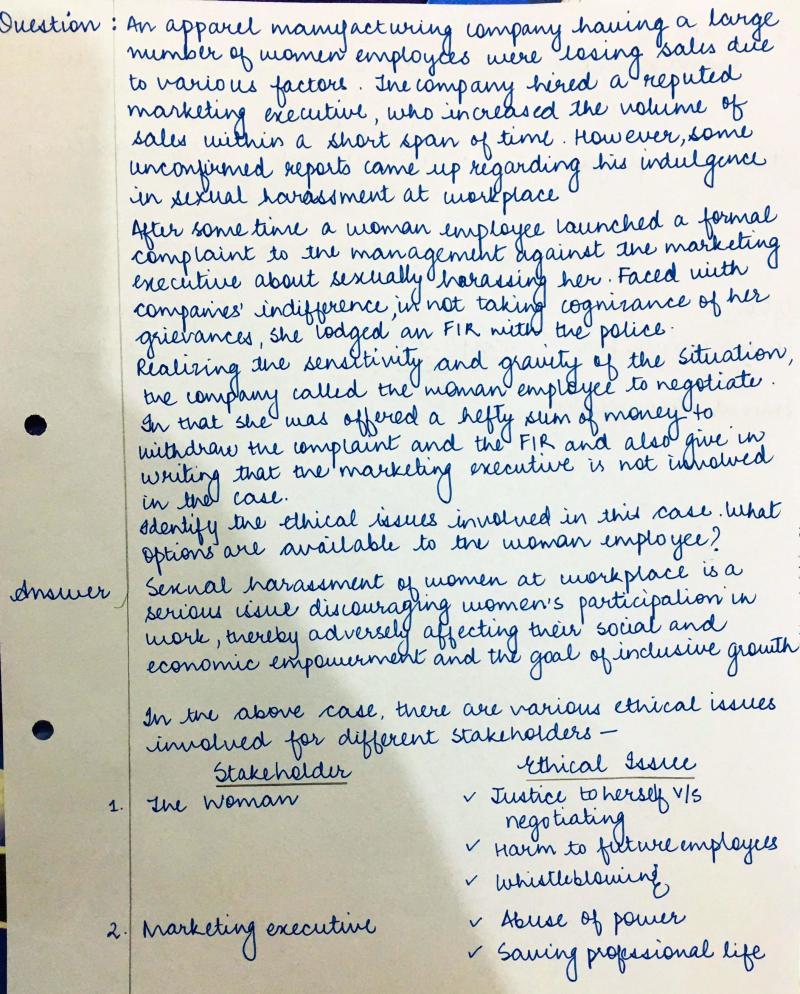 Question : An apparel manufacturing company having a large
number of women employees were losing sales due
to various factors. The company hired a reputed
marketing executive, who increased the volume of
sales within a short span of time. However, some
unconfirmed reports came up regarding his indulgence
in sexual harassment at workplace
After some time a woman employee launched a formal
complaint to the management against the marketing
executive about sexually harassing her. Faced with
companies' indifference, in not taking cognizance of her
grievances, she lodged an FIR with the police.
Realizing the sensitivity and gravity of the situation,
the company called the woman employee to negotiate.
In that she was offered a hefty sum of money to
withdraw the complaint and the FIR and also give in
writing that the marketing executive is not involved
in the case.
Identify the ethical issues involved in this case. What
options are available to the woman employee?
Answer Sexual harassment of women at workplace is a
serious issue discouraging women's participation in
work, thereby adversely affecting their social and
economic empowerment and the goal of inclusive growth
In the above case, there are various ethical issues
involved for different stakeholders —
Stakeholder Ethical Issue
1. The Woman ✓ Justice to herself v/s
negotiating
✓ Harm to future employees
✓ Whistleblowing
2. Marketing executive ✓ Abuse of power
✓ Saving professional life